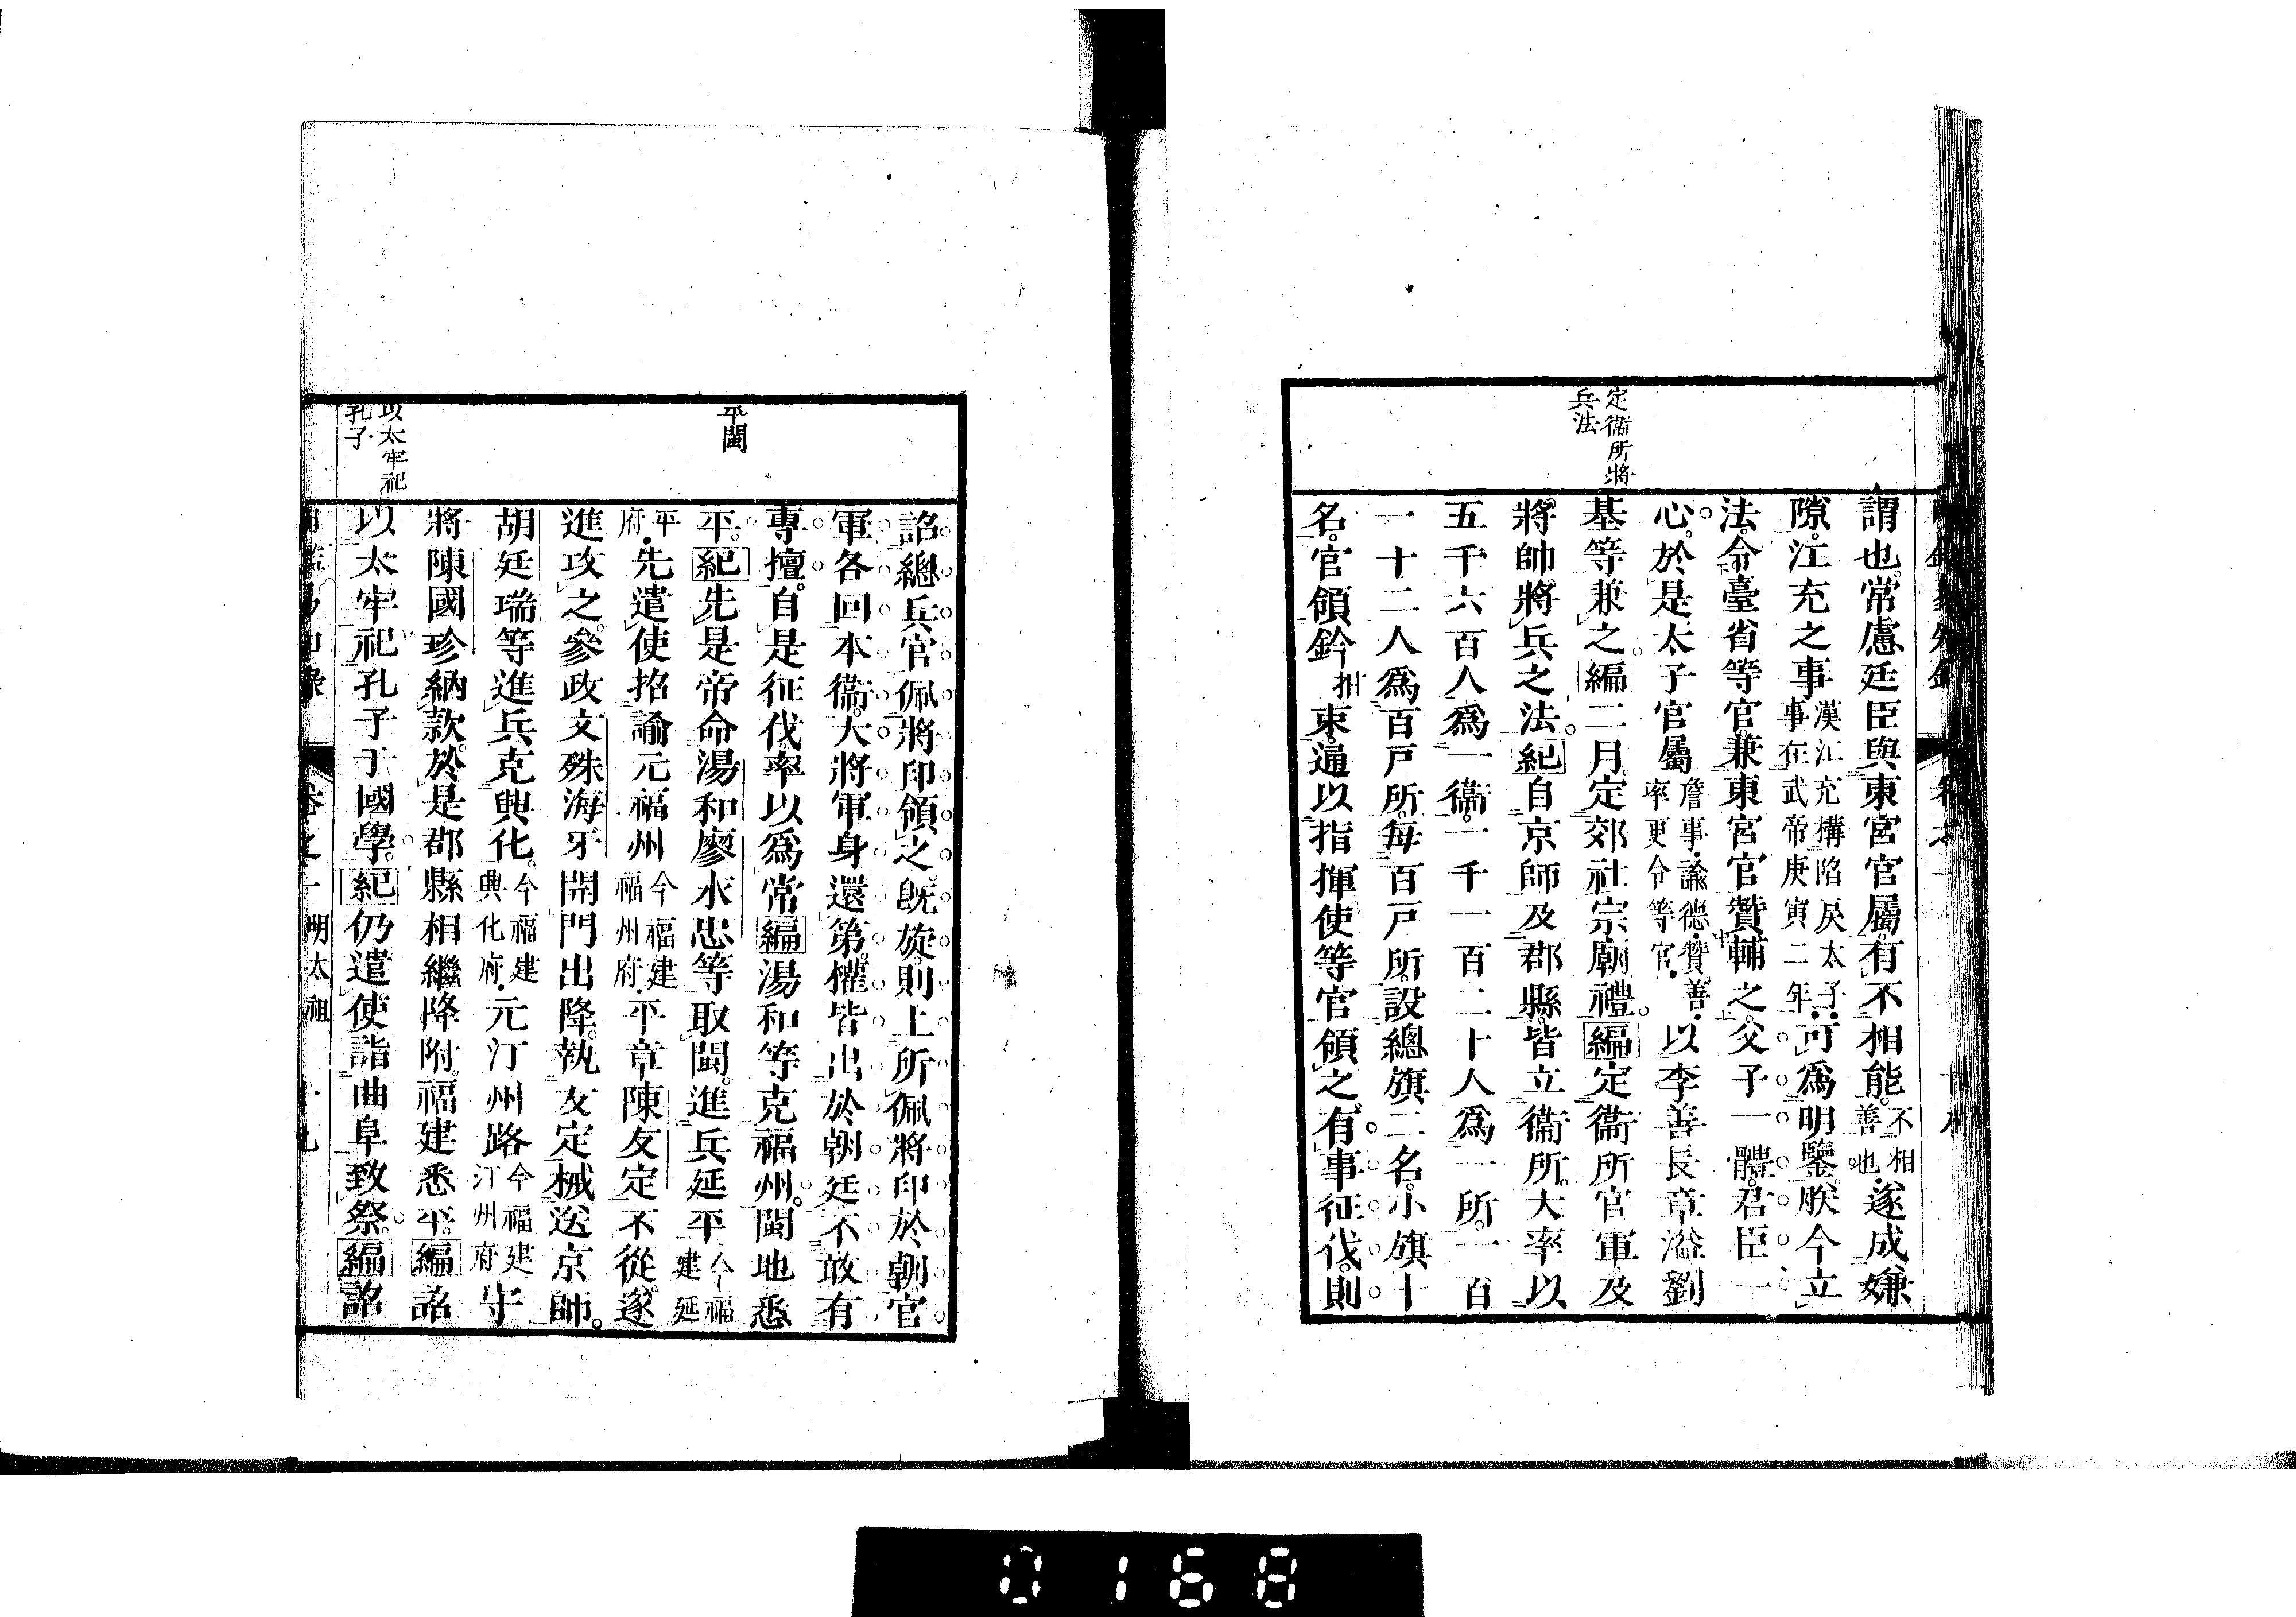 定衞所將
兵法
謂也常慮廷臣與東宮官屬有不相能不相善也遂成嫌
隙江充之事漢江充構陷戾太子事在武帝庚寅二年可爲明鑒朕今立
法令臺省等官兼東宮官贊輔之父子一體君臣一
心於是太子官屬詹事諭德贊善率更令等官以李善長章溢劉
基等兼之編二月定郊社宗廟禮編定衞所官軍及
將帥將兵之法紀自京師及郡縣皆立衞所大率以
五千六百人爲一衞一千一百二十人爲一所一百
一十二人爲百戸所每百戸所設總旗二名小旗十
名官領鈐拑束通以指揮使等官領之有事征伐則
平閩
以太牢祀
孔子
詔總兵官佩將印領之旣旋則上所佩將印於朝官
軍各回本衞大將軍身還第權皆出於朝廷不敢有
專擅自是征伐率以爲常編湯和等克福州閩地悉
平紀先是帝命湯和廖永忠等取閩進兵延平今福建延
平府先遣使招諭元福州今福建福州府平章陳友定不從遂
進攻之參政文殊海牙開門出降執友定械送京師
胡廷瑞等進兵克興化今福建興化府元汀州路今福建汀州府守
將陳國珍納款於是郡縣相繼降附福建悉平編詔
以太牢祀孔子于國學紀仍遣使詣曲阜致祭編詔
卷之一 明太祖 十九